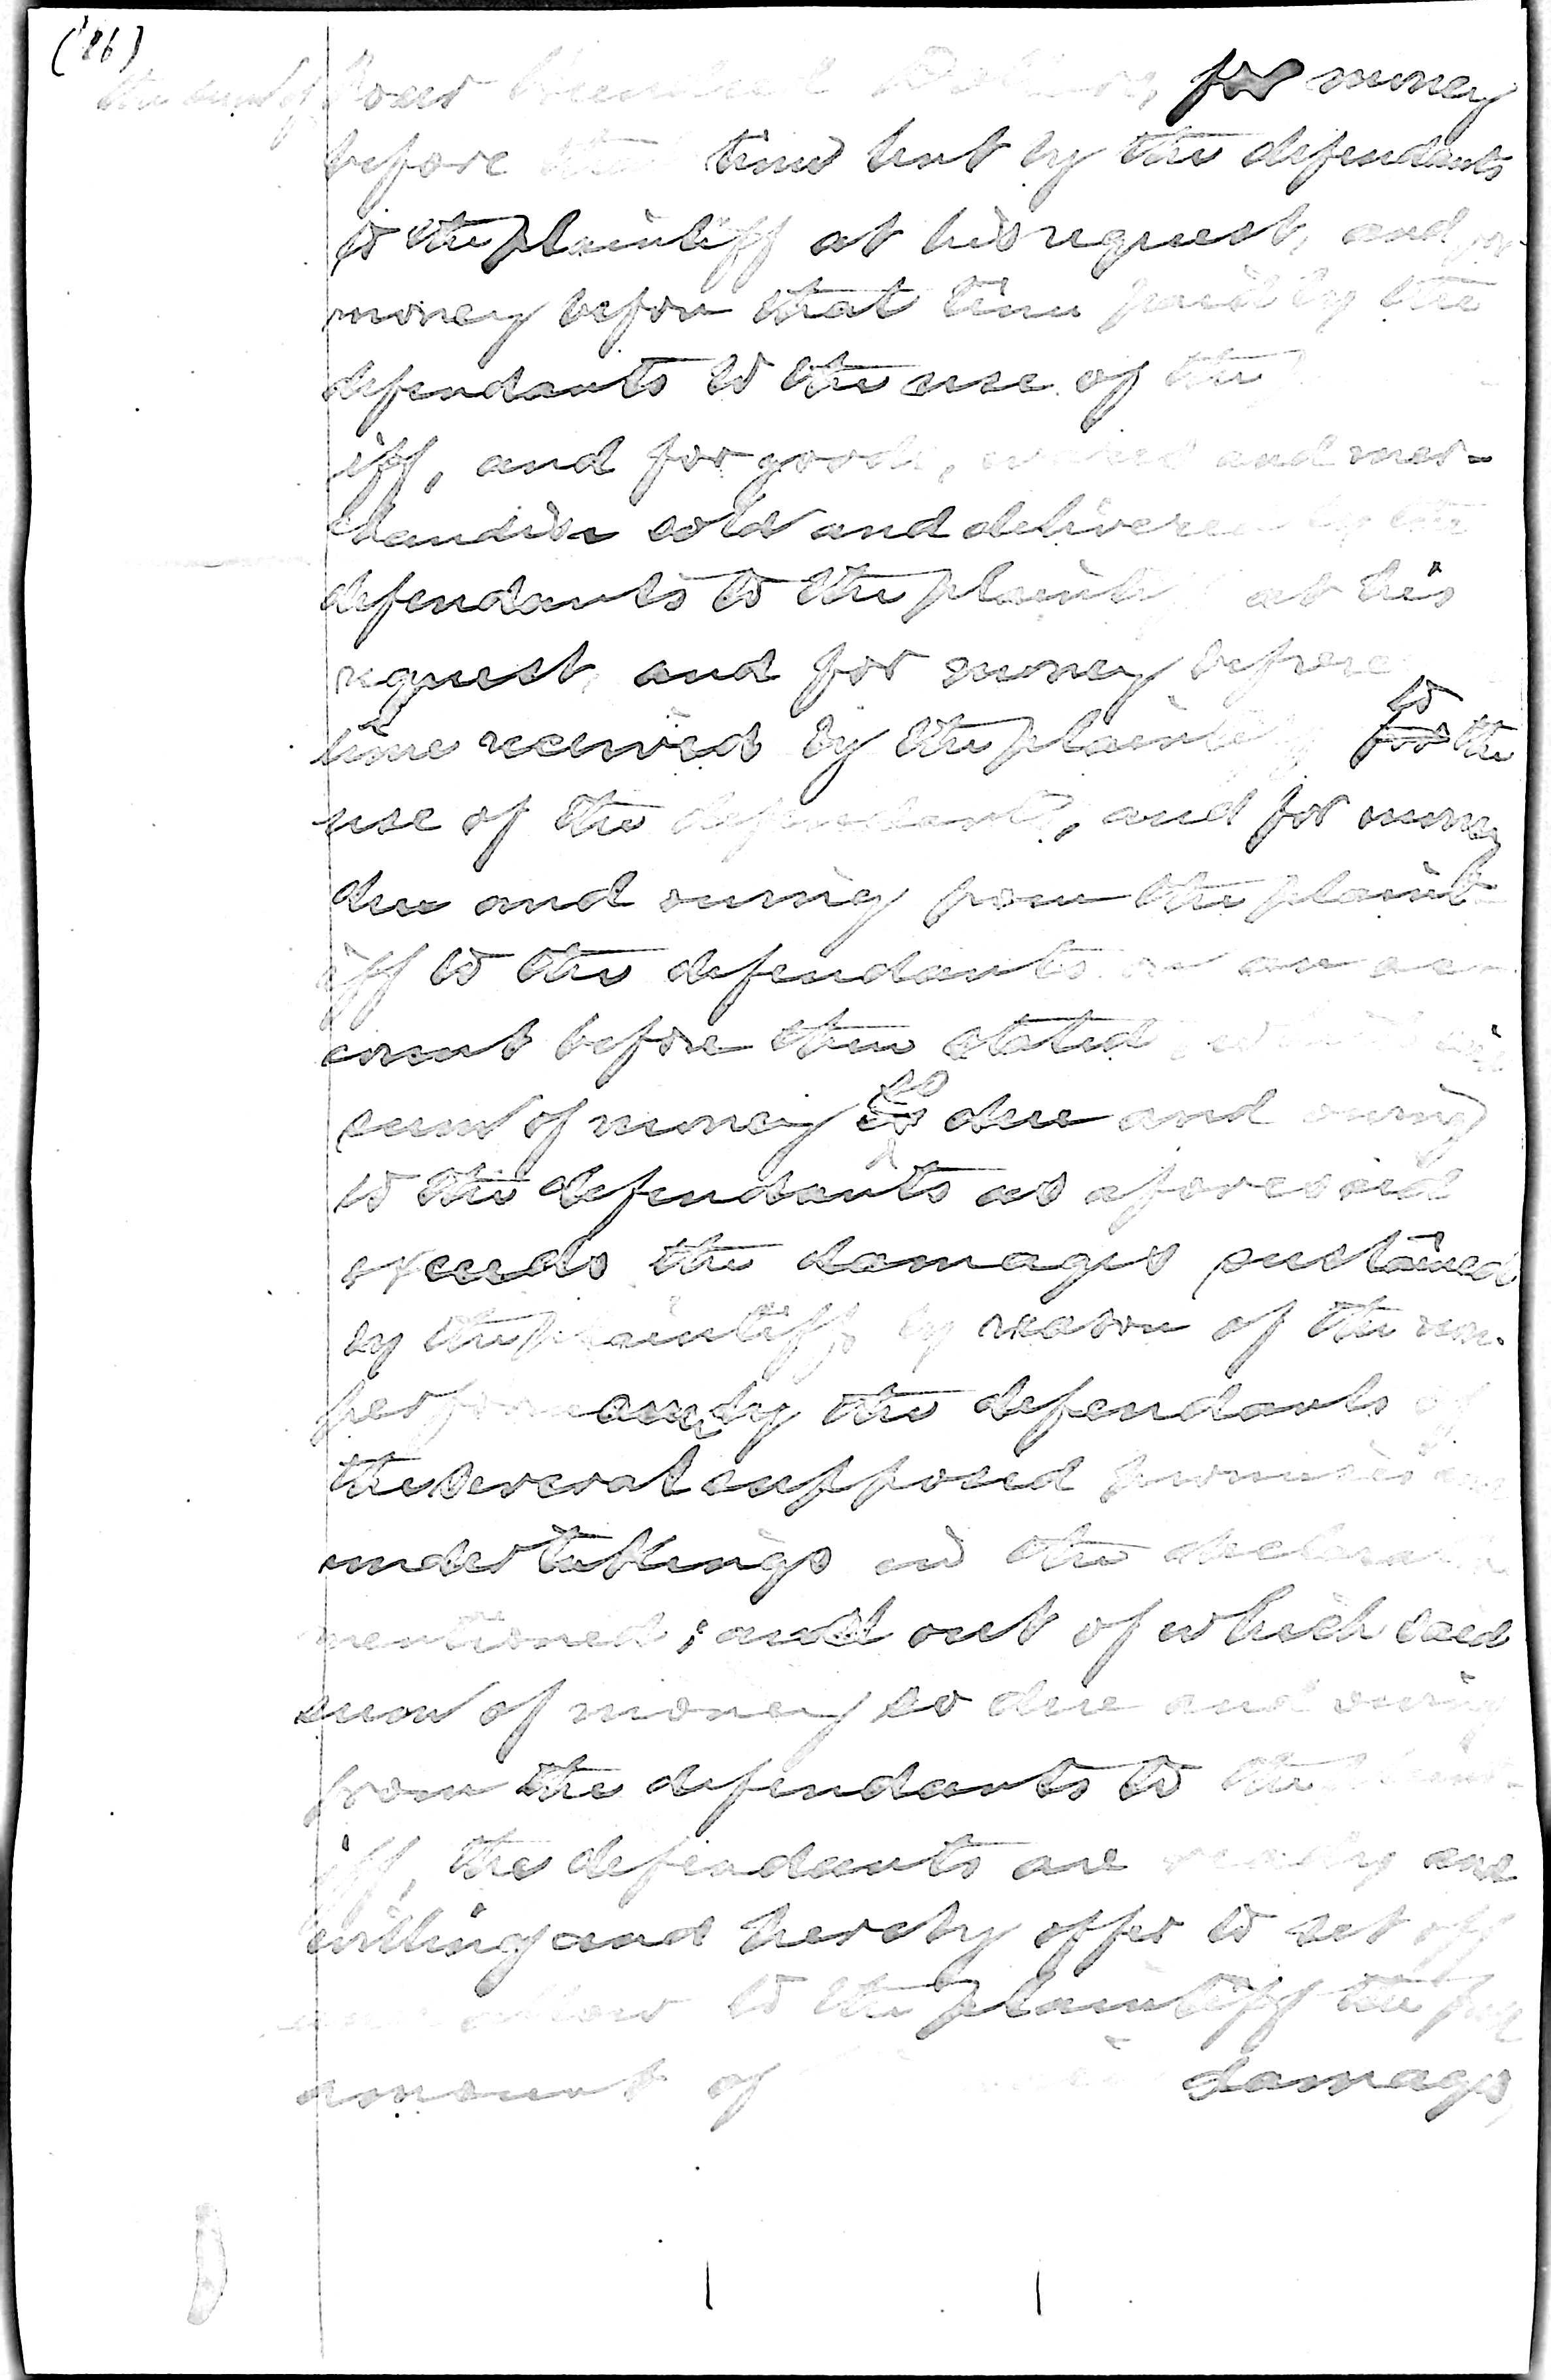 (86)
the sum of Four Hundred Dollars, for money
before that time lent by the defendants
to the plaintiff at his request, and for
money before that time paid by the
defendants to the use of the
iff, and for goods, wares and mer-
chandise sold and delivered by the
defendants to the plaintiff at his
request, and for money before
to
time received by the plaintiff for the
use of the defendants, and for money
due and owing from the plaint-
iff to the defendants on an ac-
count before then stated, which
so
sum of money is due and owing
to the defendants as aforesaid
exceeds the damages sustained
by the plaintiff, by reason of the non-
performance by the defendants of
the several supposed promises and
undertakings in the declaration
mentioned; and out of which said
sum of money so due and owing
from the defendants to the plaint-
iff, the defendants are ready and
willing and hereby offer to set off
and allow to the plaintiff the full
amount of damages,